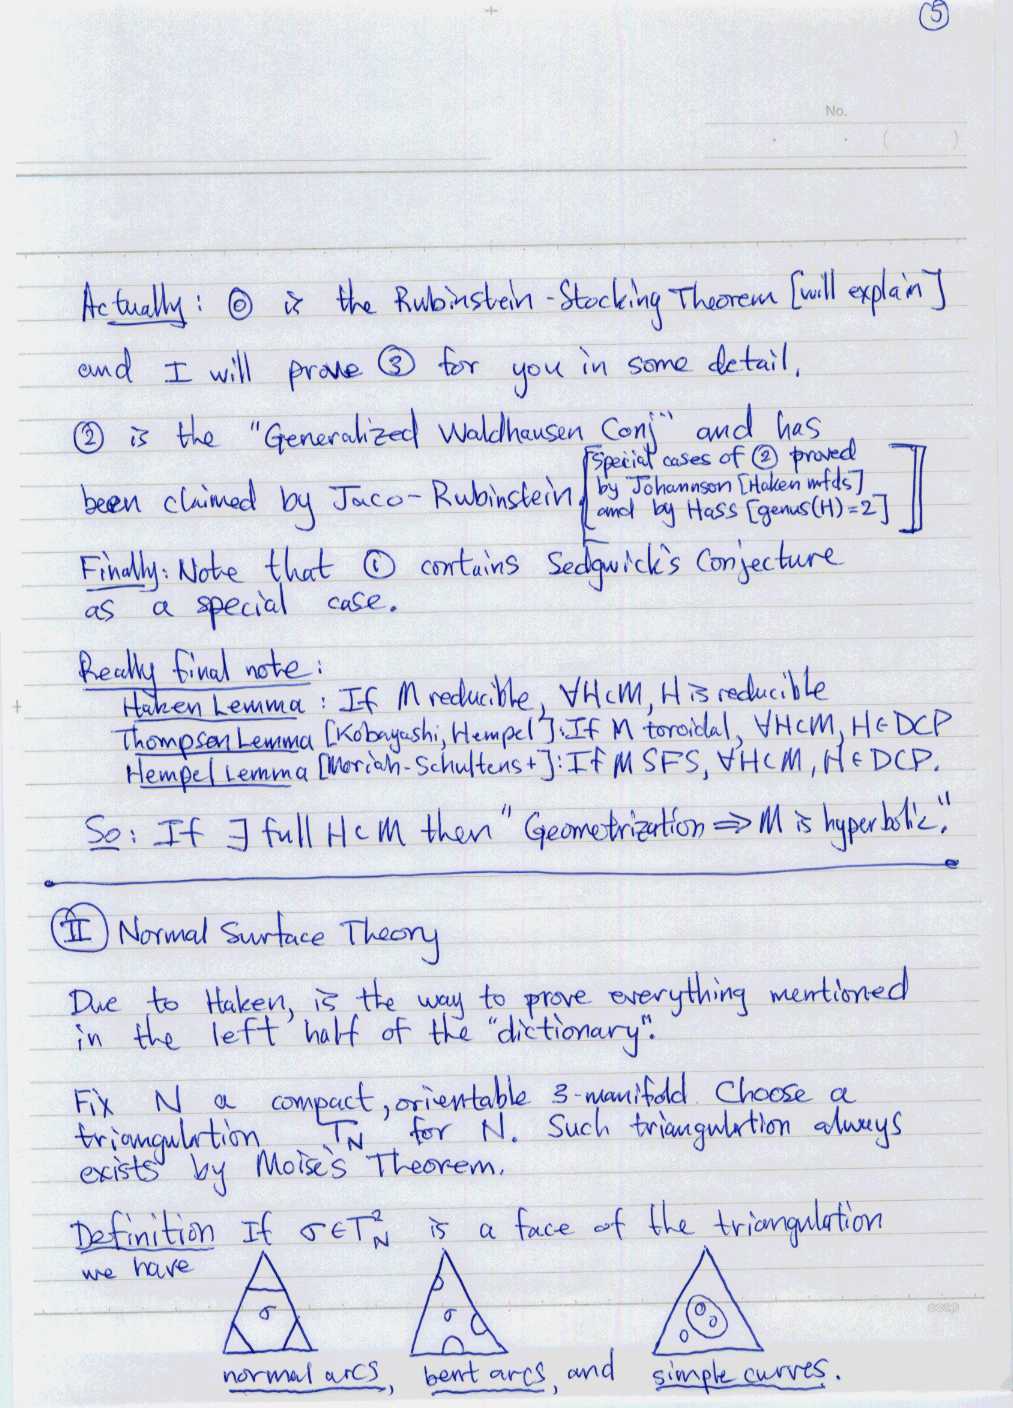 ⑤
No.
( )
Actually: ⓪ is the Rubinstein-Stocking Theorem [will explain]
and I will prove ③ for you in some detail.
② is the "Generalized Waldhausen Conj" and has
been claimed by Jaco-Rubinstein
[Special cases of ② proved
by Johannson [Haken mfds]
and by Hass [genus(H)=2]]
Finally: Note that ① contains Sedgwick's Conjecture
as a special case.
Really final note:
Haken Lemma: If M reducible, ∀H⊂M, H is reducible
Thompson Lemma [Kobayashi, Hempel]: If M toroidal, ∀H⊂M, H∈DCP
Hempel Lemma [Moriah-Schultens+]: If M SFS, ∀H⊂M, H∈DCP.
So: If ∃ full H⊂M then "Geometrization ⇒ M is hyperbolic."
Ⅱ Normal Surface Theory
Due to Haken, is the way to prove everything mentioned
in the left half of the "dictionary".
Fix N a compact, orientable 3-manifold. Choose a
triangulation T_N for N. Such triangulation always
exists by Moise's Theorem.
Definition If σ∈T_N^2 is a face of the triangulation
we have
σ σ
normal arcs, bent arcs, and simple curves.